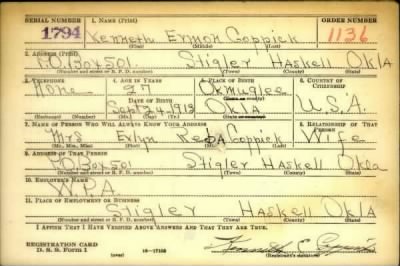 SERIAL NUMBER 1. NAME (Print) ORDER NUMBER
1794 Kenneth Ermon Coppick 1136
(First) (Middle) (Last)
2. ADDRESS (Print)
P.O. Box 501 Stigler Haskell Okla
(Number and street or R. F. D. number) (Town) (County) (State)
3. TELEPHONE 4. AGE IN YEARS 5. PLACE OF BIRTH 6. COUNTRY OF CITIZENSHIP
None 27 Okmulgee
DATE OF BIRTH (Town or county)
Sept 4 1913 Okla U.S.A.
(Mo.) (Day) (Yr.) (State or country)
7. NAME OF PERSON WHO WILL ALWAYS KNOW YOUR ADDRESS 8. RELATIONSHIP OF THAT PERSON
Mrs Coppick Wife
(Mr., Mrs., Miss) (First) (Middle) (Last)
9. ADDRESS OF THAT PERSON
P.O. Box 501 Stigler Haskell Okla
(Number and street or R. F. D. number) (Town) (County) (State)
10. EMPLOYER'S NAME
W.P.A.
11. PLACE OF EMPLOYMENT OR BUSINESS
Stigler Haskell Okla
(Number and street or R. F. D. number) (Town) (County) (State)
I AFFIRM THAT I HAVE VERIFIED ABOVE ANSWERS AND THAT THEY ARE TRUE.
REGISTRATION CARD
D. S. S. Form 1 (over) Kenneth E. Coppick
(Registrant's signature)